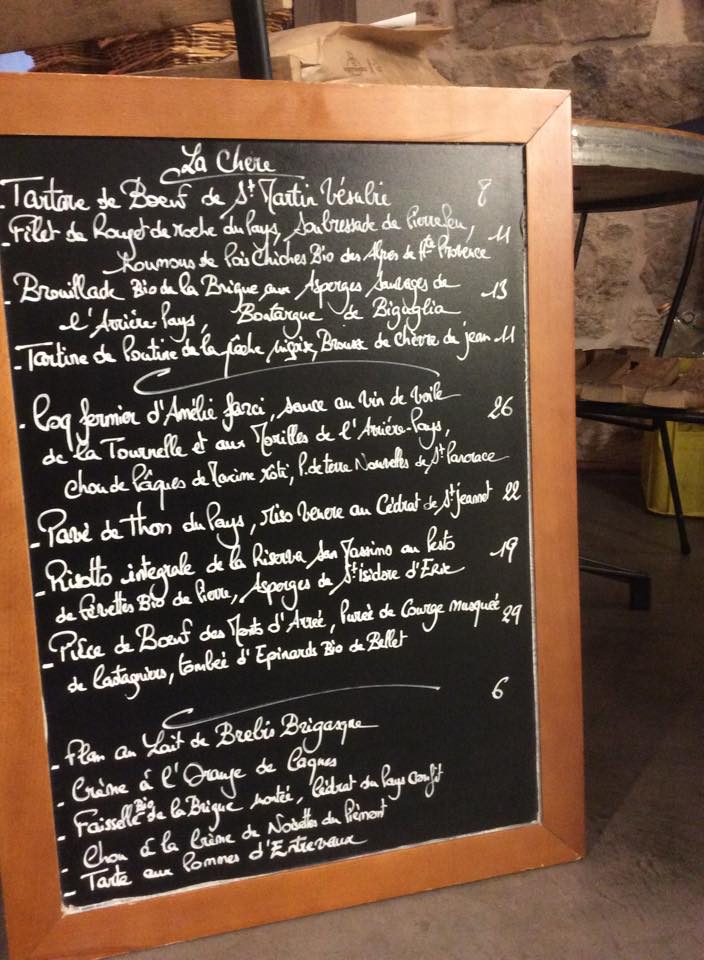 La Chère
- Tartare de Boeuf de St Martin Vésubie 8
- Filet de Rouget de roche du Pays, Soubressade de Pierrefeu,
Houmous de Pois Chiches Bio des Alpes de Hte Provence 11
- Brouillade Bio de la Brigue aux Asperges Sauvages de
l'Arrière-Pays, Boutargue de Biguglia 13
- Tartine de Poutine de la pêche niçoise, Brousse de Chèvre de jean 11
- Coq fermier d'Amélie farci, sauce au Vin de Voile 26
de la Tournelle et aux Morilles de l'Arrière-Pays,
Chou de Pâques de Maxime rôti, P. de terre Nouvelles de St Pancrace
- Pavé de Thon du Pays, Riso Venere au Cédrat de St jeannet 22
- Risotto integrale de la Riserva San Massimo au Pesto
de Févettes Bio de Pierre, Asperges de St Isidore d'Eric 19
- Pièce de Boeuf des Monts d'Arrée, Purée de Courge musquée 29
de Castagniers, tombée d'Epinards Bio de Bellet
6
- Flan au Lait de Brebis Brigasque
- Crème à l'Orange de Cagnes
- Faisselle Bio de la Brigue montée, Cédrat du Pays Confit
- Chou à la Crème de Noisettes du Piémont
- Tarte aux Pommes d'Entrevaux